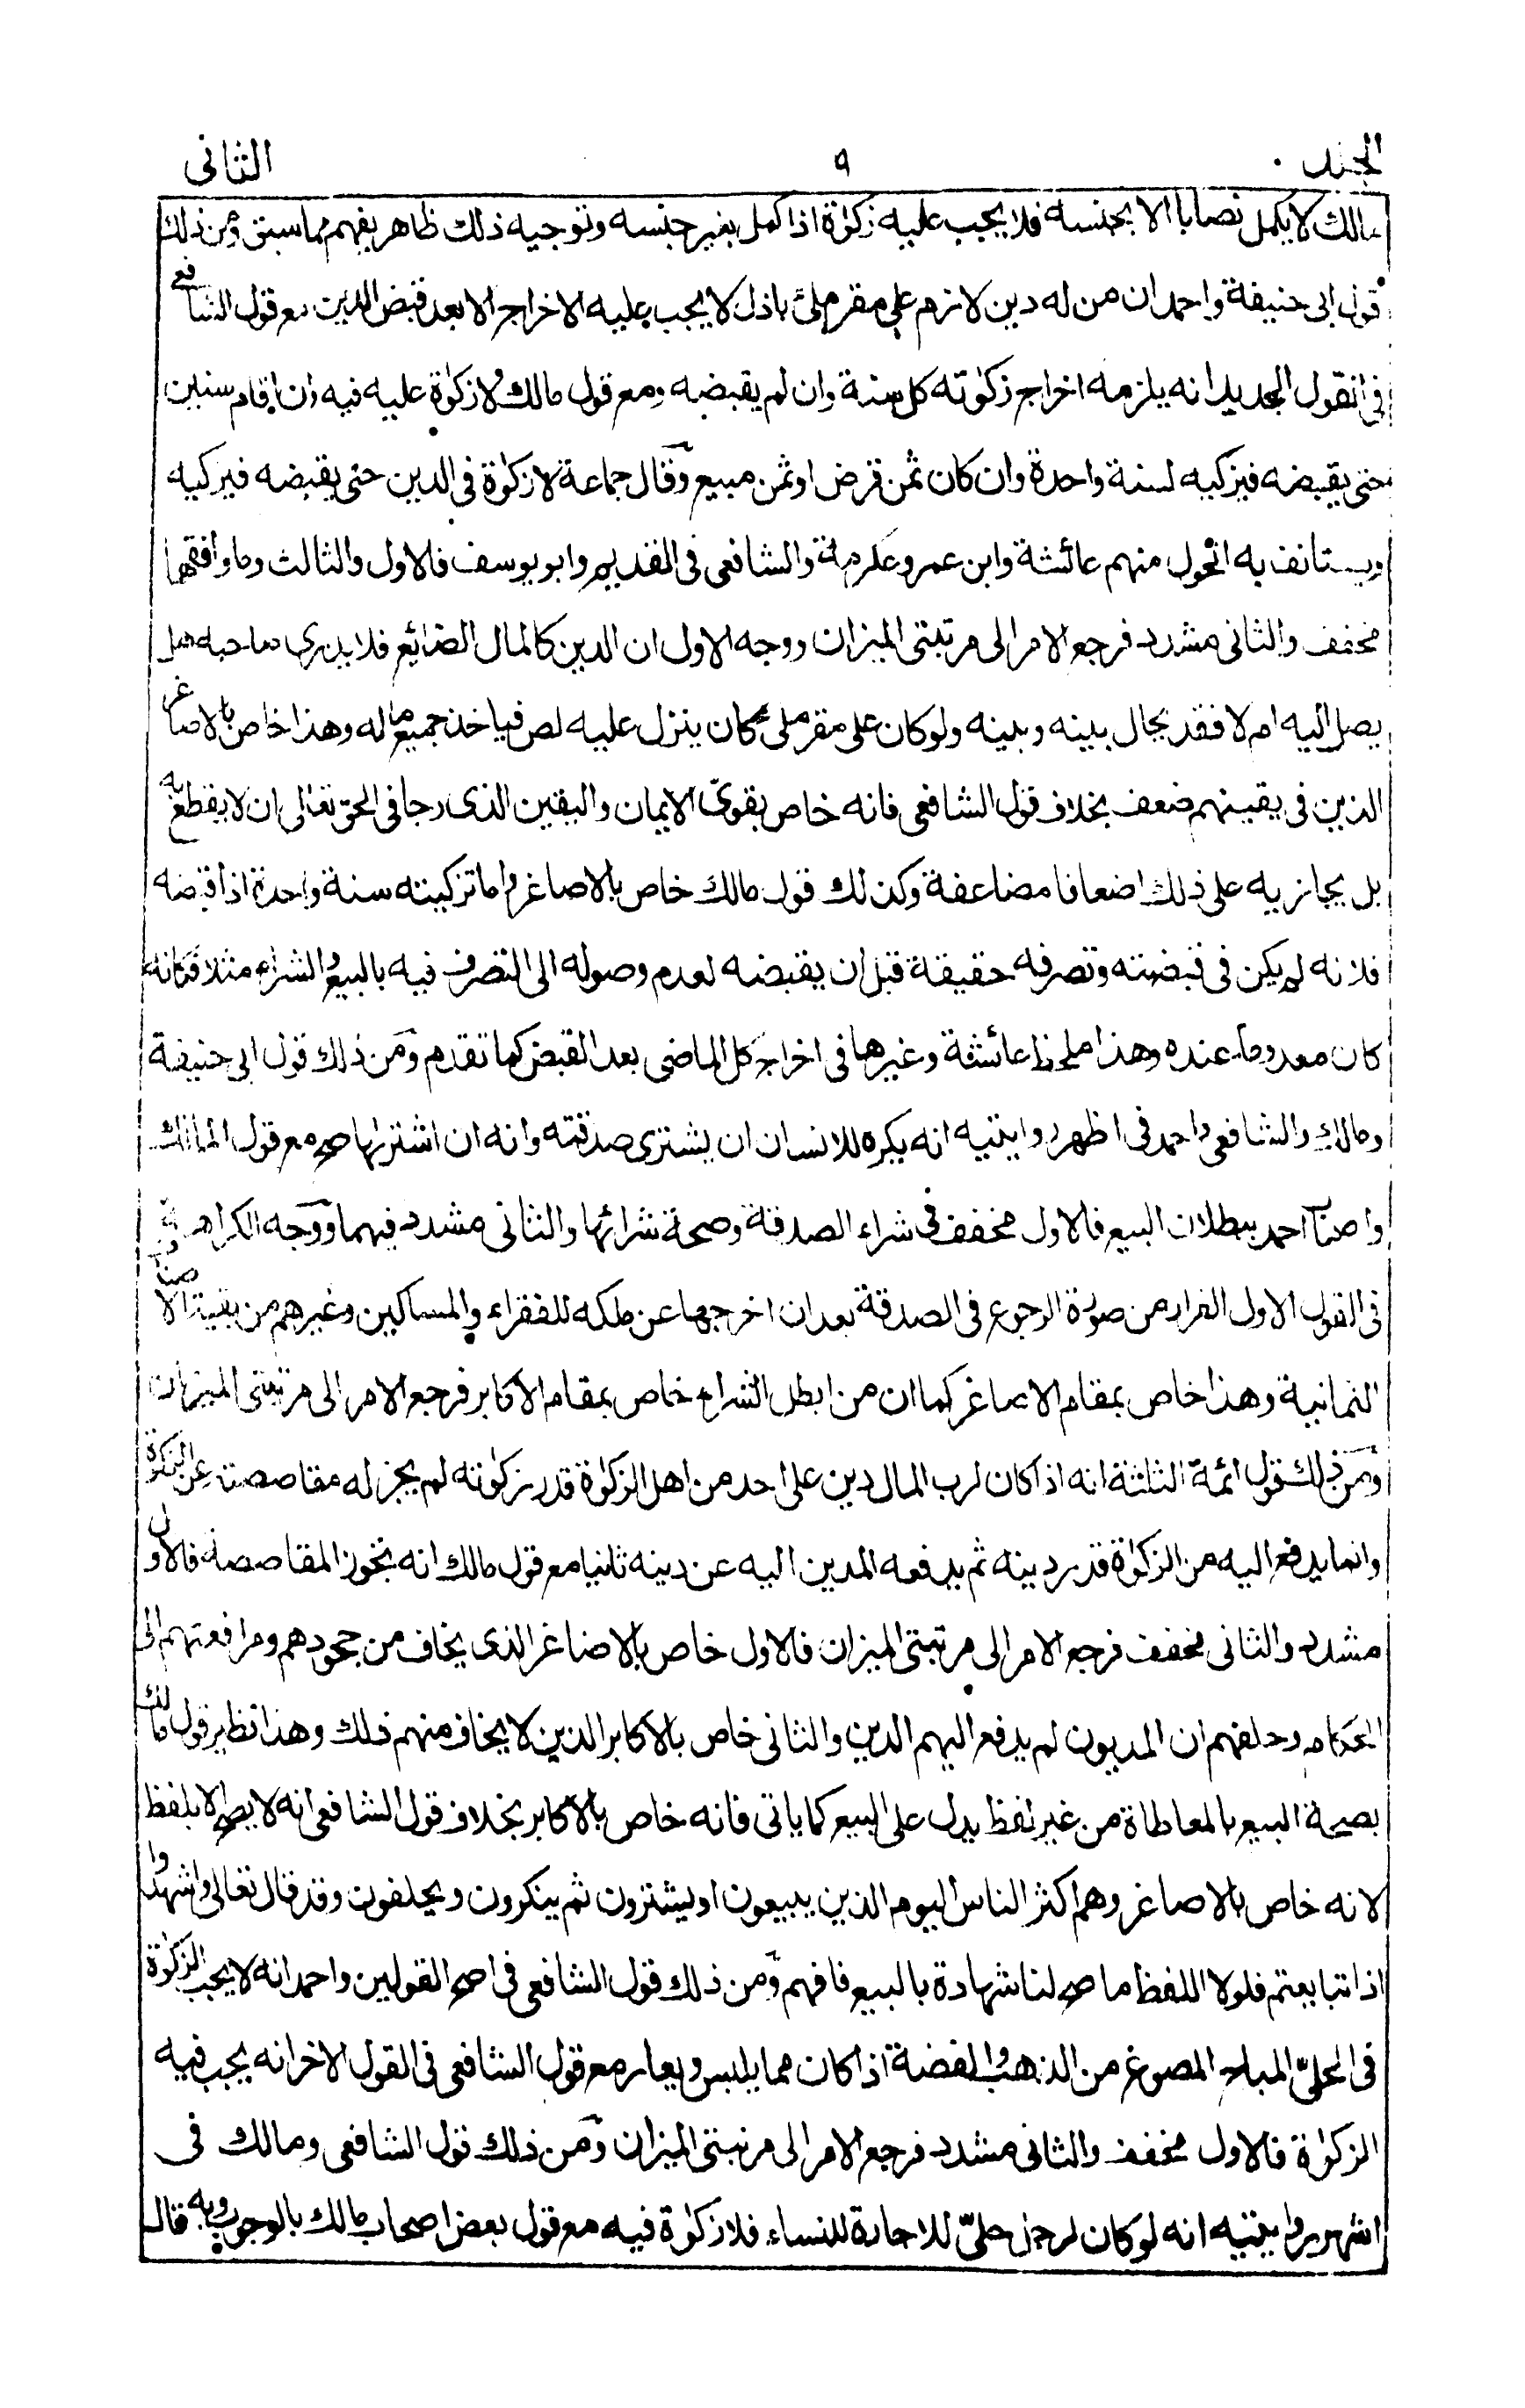 الجلد ٩ الثانى
مالك لا يكمل نصابا الا بجنسه فلا يجب عليه زكوٰة اذا كمل بغير جنسه وتوجيه ذلك ظاهر يفهم مما سبق ومن ذلك
قول ابى حنيفة واحمد ان من له دين لازم على مقر ملئ باذل لا يجب عليه الاخراج الا بعد قبض الدين مع قول الشافعى
فى القول الجديد انه يلزمه اخراج زكوٰته كل سنة وان لم يقبضه ومع قول مالك لا زكوٰة عليه فيه وان اقام سنين
حتى يقبضه فيزكيه لسنة واحدة وان كان ثمن قرض او ثمن مبيع وقال جماعة لا زكوٰة فى الدين حتى يقبضه فيزكيه
ويستانف به الحول منهم عائشة وابن عمر وعكرمة والشافعى فى القديم وابو يوسف فالاول والثالث وما وافقهما
مخفف والثانى مشدد فرجع الامر الى مرتبتى الميزان ووجه الاول ان الدين كالمال الضائع فلا يدرى صاحبه هل
يصل اليه ام لا فقد يحال بينه وبينه ولو كان على مقر ملى كان ينزل عليه لص فياخذ جميع ماله وهذا خاص بالاصاغر
الذين فى يقينهم ضعف بخلاف قول الشافعى فانه خاص بقوىّ الايمان واليقين الذى رجا فى الحق تعالى ان لا يقطع به
بل يجازيه على ذلك اضعافا مضاعفة وكذلك قول مالك خاص بالاصاغر واما تزكيته سنة واحدة اذا قبضه
فلانه لم يكن فى قبضته وتصرفه حقيقة قبل ان يقبضه لعدم وصوله الى التصرف فيه بالبيع والشراء مثلا فكانه
كان معدوما عنده وهذا ملحظ عائشة وغيرها فى اخراج كل الماضى بعد القبض كما تقدم ومن ذلك قول ابى حنيفة
ومالك والشافعى واحمد فى اظهر روايتيه انه يكره للانسان ان يشترى صدقته وانه ان اشتراها صح مع قول المالك
واصحاب احمد ببطلان البيع فالاول مخفف فى شراء الصدقة وصحة شرائها والثانى مشدد فيهما ووجه الكراهة
فى القول الاول الفرار من صورة الرجوع فى الصدقة بعد ان اخرجها عن ملكه للفقراء والمساكين وغيرهم من بقية الاصناف
الثمانية وهذا خاص بمقام الاصاغر كما ان من ابطل الشراء خاص بمقام الاكابر فرجع الامر الى مرتبتى الميزان
ومن ذلك قول ائمة الثلثة انه اذا كان لرب المال دين على احد من اهل الزكوٰة قدر زكوٰته لم يجز له مقاصصته عن الزكوٰة
وانما يدفع اليه من الزكوٰة قدر دينه ثم يدفعه المدين اليه عن دينه ثانيا مع قول مالك انه تجوز المقاصصة فالاول
مشدد والثانى مخفف فرجع الامر الى مرتبتى الميزان فالاول خاص بالاصاغر الذى يخاف من جحودهم ومرافعتهم الى
الحكام وحلفهم ان المديون لم يدفع اليهم الدين والثانى خاص بالاكابر الذين لا يخاف منهم ذلك وهذا نظير قول مالك
بصحة البيع بالمعاطاة من غير لفظ يدل على البيع كما ياتى فانه خاص بالاكابر بخلاف قول الشافعى انه لا يصح الا بلفظ
لانه خاص بالاصاغر وهم اكثر الناس اليوم الذين يبيعون او يشترون ثم ينكرون ويحلفون وقد قال تعالى واشهدوا
اذا تبايعتم فلولا اللفظ ما صح لنا شهادة بالبيع فافهم ومن ذلك قول الشافعى فى اصح القولين واحمد انه لا يجب الزكوٰة
فى الحلىّ المباح المصوغ من الذهب والفضة اذا كان مما يلبس ويعار مع قول الشافعى فى القول الاخر انه يجب فيه
الزكوٰة فالاول مخفف والثانى مشدد فرجع الامر الى مرتبتى الميزان ومن ذلك قول الشافعى ومالك فى
اشهر روايتيه انه لو كان لرجل حلىّ للاجارة للنساء فلا زكوٰة فيه مع قول بعض اصحاب مالك بالوجوب وبه قال